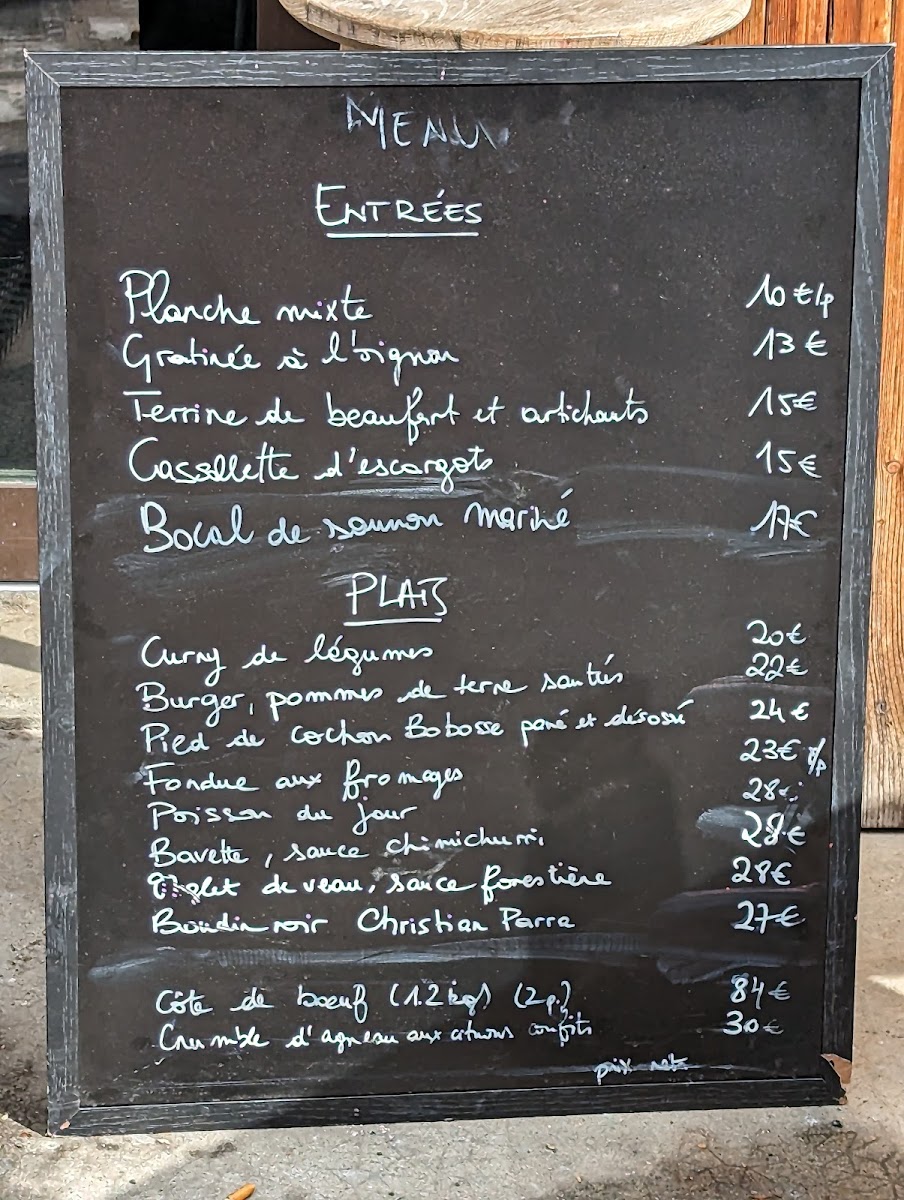 MENU
ENTRÉES
Planche mixte 10€/p
Gratinée à l'oignon 13€
Terrine de beaufort et artichauts 15€
Cassollette d'escargots 15€
Bocal de saumon mariné 17€
PLATS
Curry de légumes 20€
Burger, pommes de terre sautées 22€
Pied de cochon Bobosse pané et désossé 24€
Fondue aux fromages 23€/p
Poisson du jour 28€
Bavette, sauce chimichurri 28€
Onglet de veau, sauce forestière 28€
Boudin noir Christian Parra 27€
Côte de boeuf (1.2kgs) (2p.) 84€
Crumble d'agneau aux citrons confits 30€
prix nets